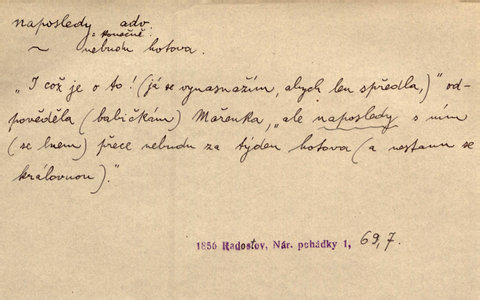 naposledy adv.
= konečně:
~ nebudu hotova.
„I což je o to! (já se vynasnažím, abych len spředla,)“ od-
pověděla (babičkám) Mařenka, „ale naposledy s ním
(se lnem) přece nebudu za týden hotova (a nestanu se
královnou).“
1856 Radostov, Nár. pohádky 1, 69, 7.